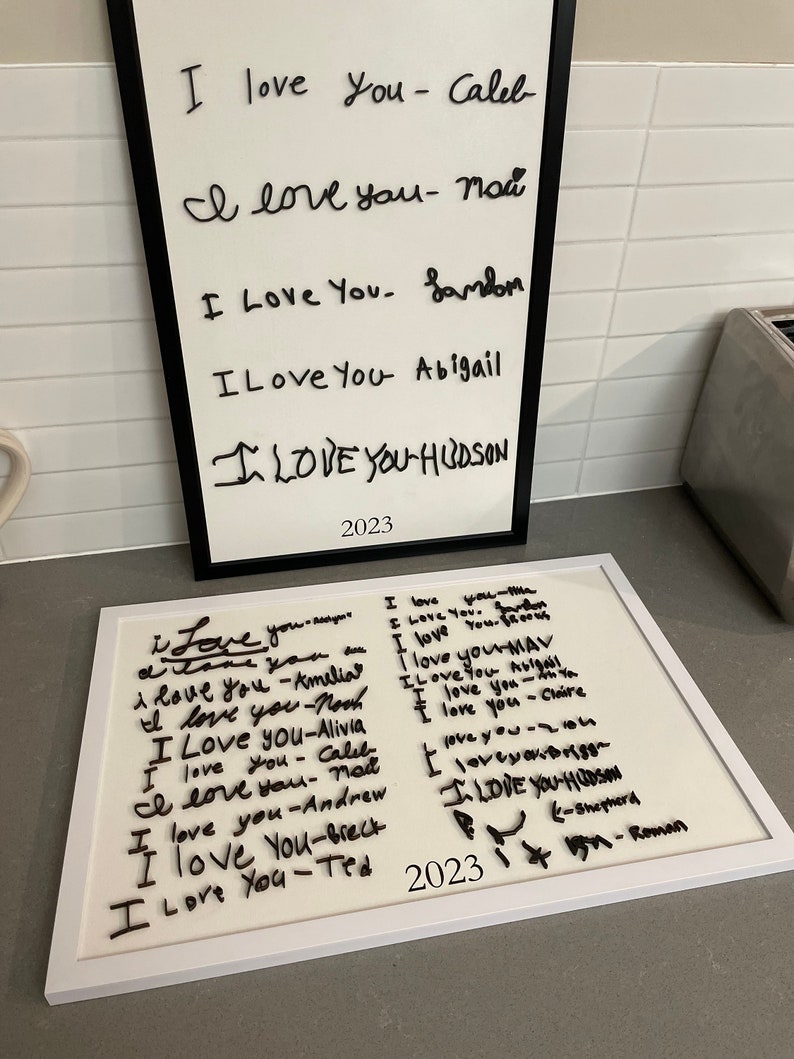 I love you- Caleb
I love you- Noa
I Love You- Landon
I Love You- Abigail
I LOVE YOU-HUDSON
2023
i Love you-
I love you
i love you -Amelia
I love you-Noah
I Love you-Alivia
I love you- Caleb
I love you- Noa
I love you-Andrew
I love You-Breck
I Love You-Ted
I love you-
I Love You- Landon
I love You-BROOKS
I love you-MAV
I Love You Abigail
I love you-
I love you- Claire
I love you-
I love you-
I LOVE YOU-HUDSON
-Shepherd
-Roman
2023